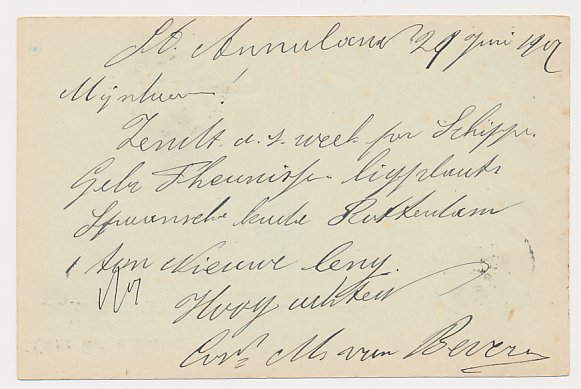 St. Annaland 29 Juni 1907
Mijnheer!
Zendt a. s. week per Schipper
Gebr Theunisse ligplaats
Spaansche kade Rotterdam
1 ton Nieuwe
Hoog achtend
Corns M. van Bevere